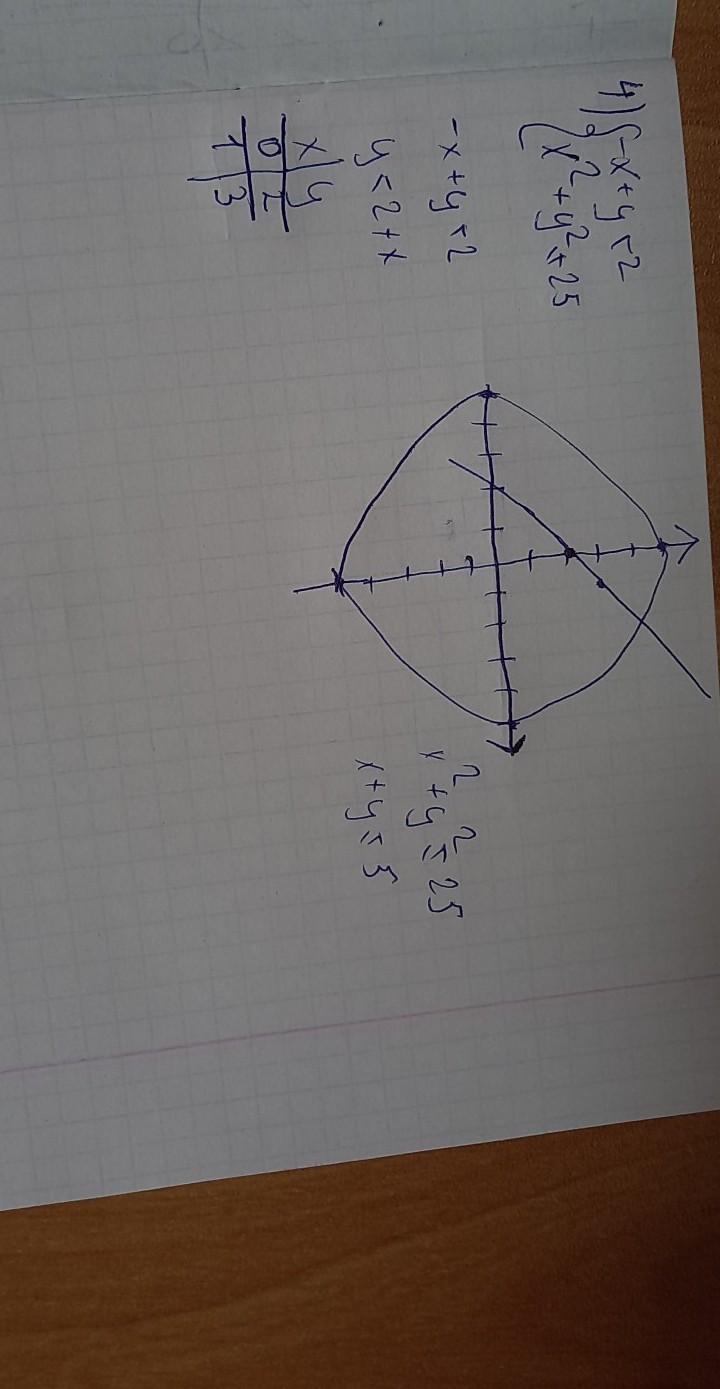 4) { -x+y<2
{ x²+y²≤25
-x+y<2
y<2+x
x | y
0 | 2
1 | 3
x²+y²≤25
x+y≤5